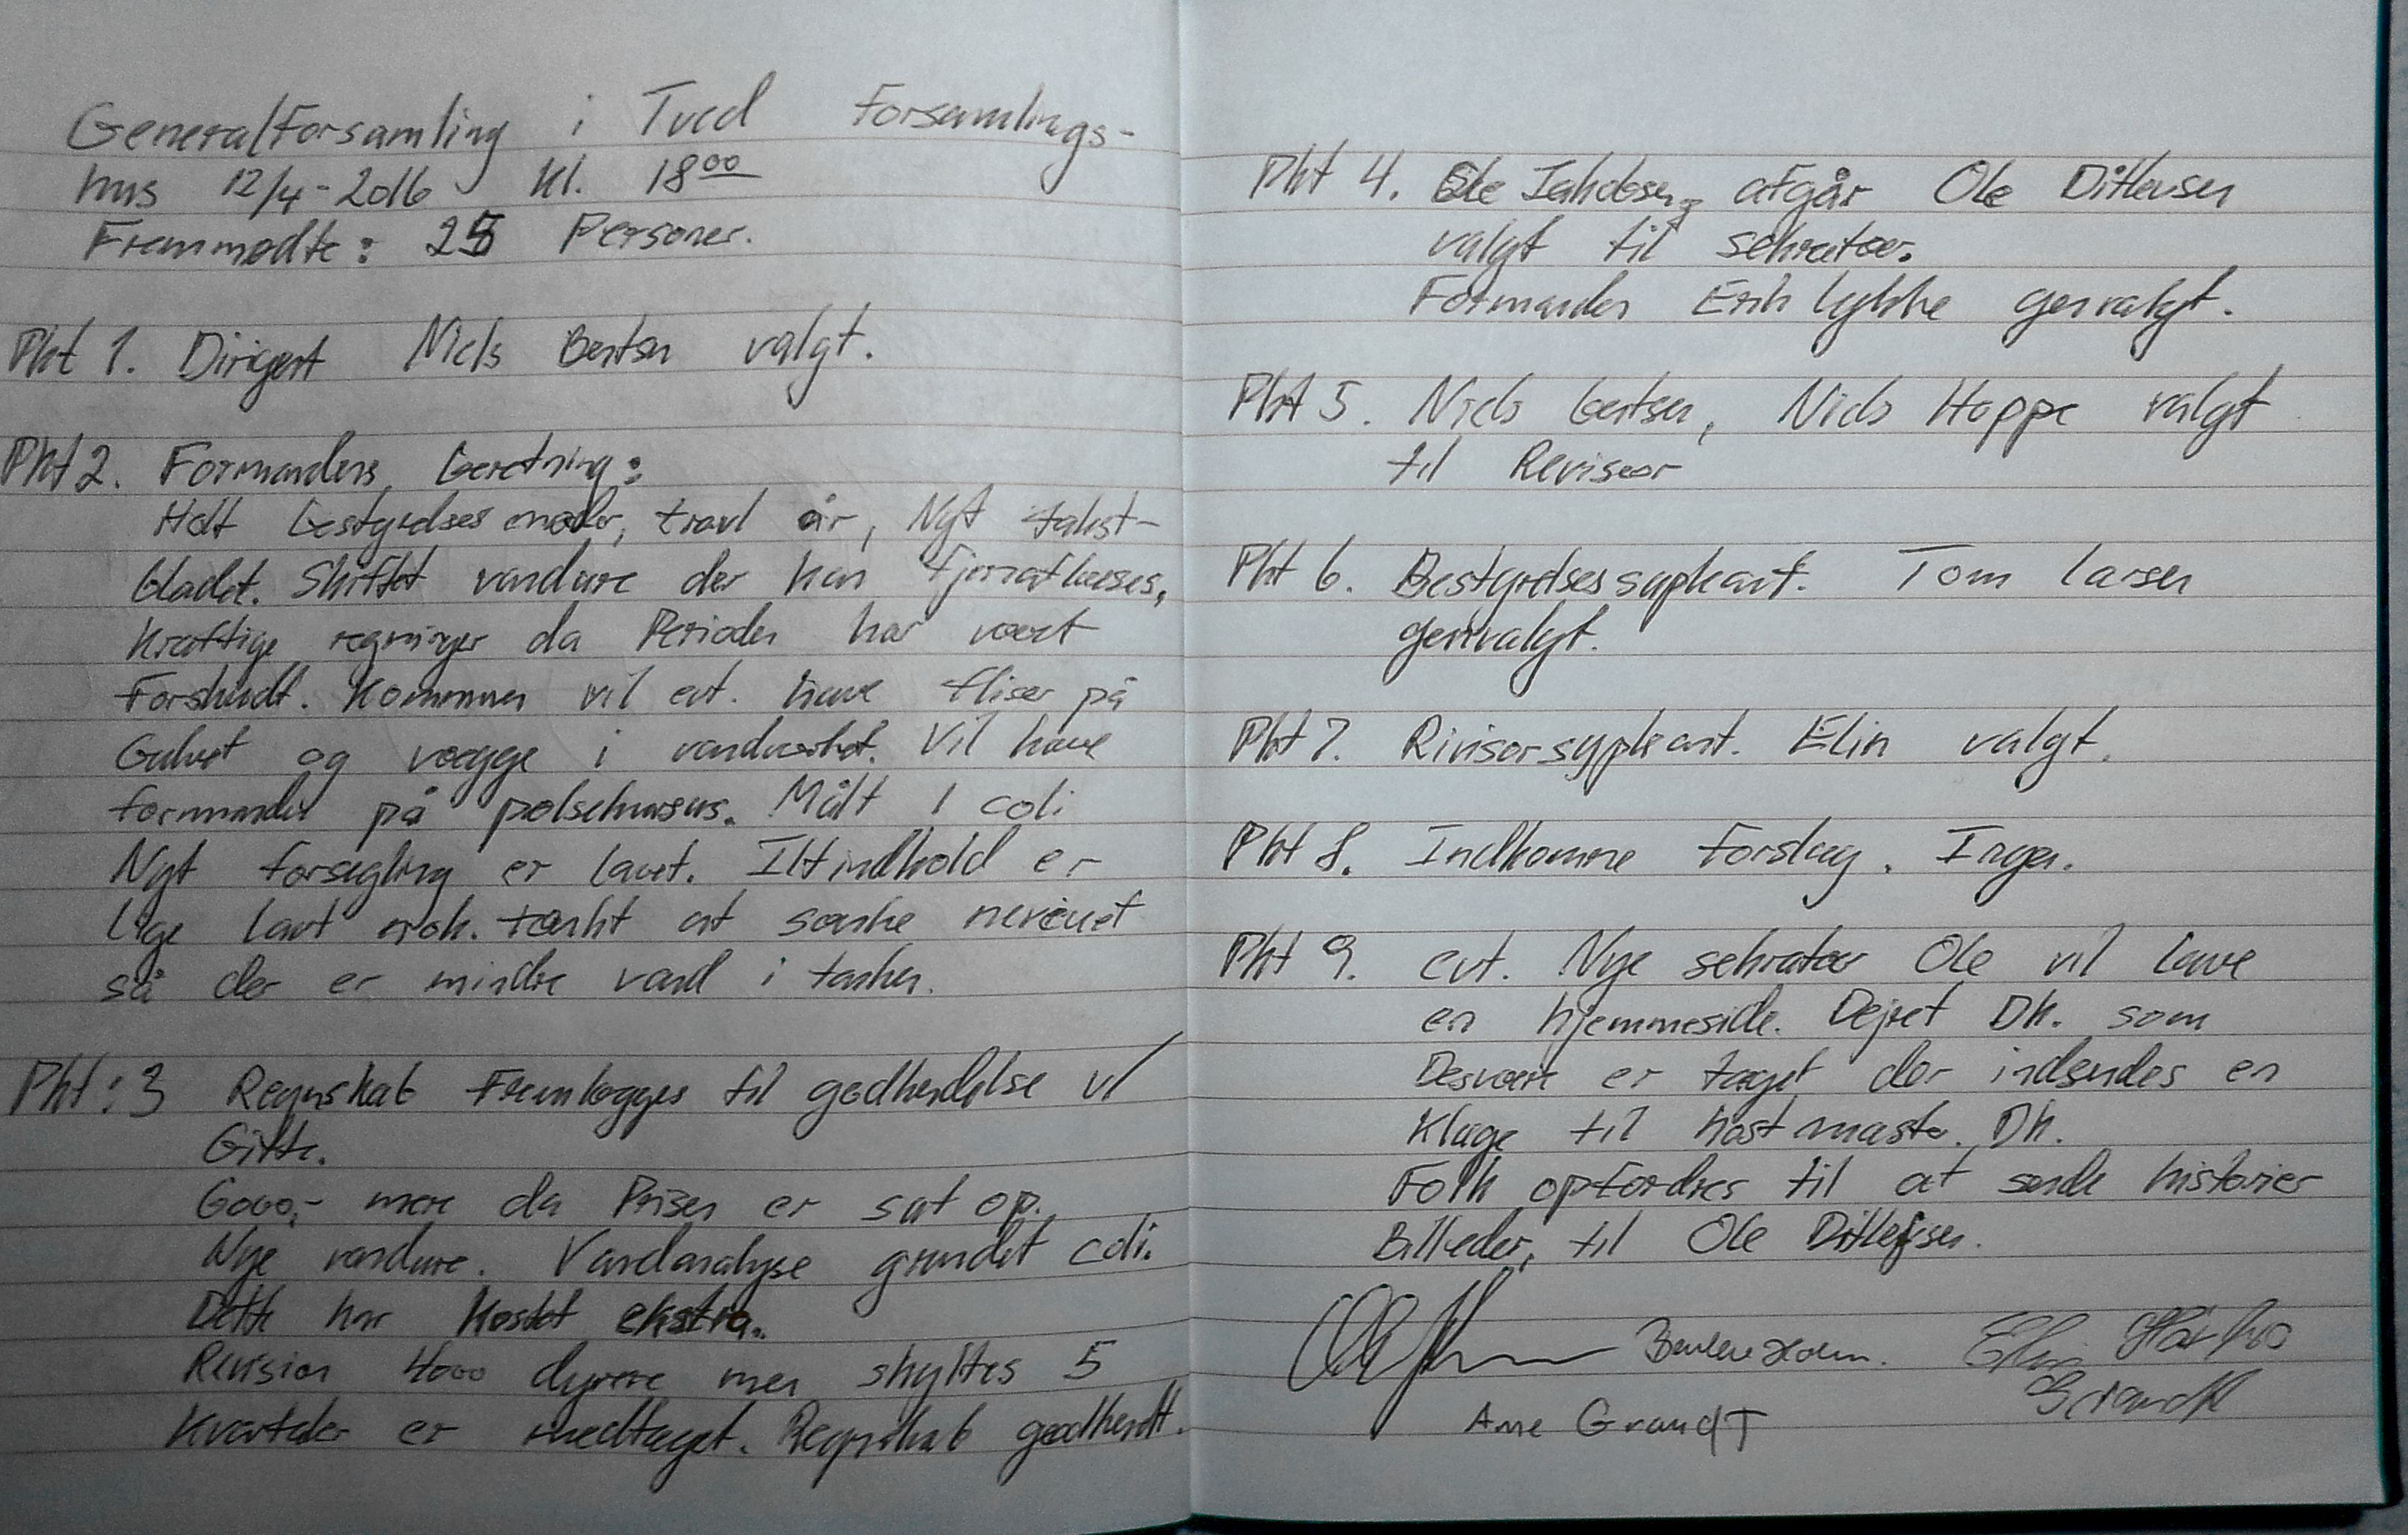 Generalforsamling i Tved Forsamlings-
hus 12/4-2016 kl. 18 00
Fremmødte: 25 Personer.
Pkt 1. Dirigent Niels Bentsen valgt.
Pkt 2. Formandens beretning:
Holdt bestyrelsesmøder, travl år, Nyt takst-
bladet. Skiftet vandure der kan fjernaflæses,
kraftige regninger da Perioden har været
Forskudt. Kommunen vil evt. have fliser på
Gulvet og vægge i vandværket. Vil have
formandet på pølsekursus. Målt 1 coli
Nyt forsegling er lavet. Ilt indhold er
lige lavt nok. tænkt at sænke niveuet
så der er mindre vand i tanken.
Pkt: 3 Regnskab Fremlægges til godkendelse v/
Gitte.
6000,- mere da Prisen er sat op.
Nye vandure. Vandanalyse grundet coli.
Dette har Kostet ekstra.
Revision 4000 dyrere men skyltes 5
Kvartaler er medtaget. Regnskab godkendt.
Pkt 4. Ole Jakobsen, afgår Ole Ditlevsen
valgt til sekretær.
Formanden Erik Lykke genvalgt.
Pkt 5. Niels bentsen, Niels Hoppe valgt
til Revisor
Pkt 6. Bestyrelsessupleant. Tom Larsen
genvalgt.
Pkt 7. Rivisorsypleant. Elin valgt.
Pkt 8. Indkomne Forslag. Ingen.
Pkt 9. evt. Nye sekretær Ole vil lave
en hjemmeside. Dejret Dk. som
Desværre er taget der indsendes en
Klage til hostmaster. Dk.
Folk opfordres til at sende historier
Billeder, til Ole Ditlefsen.
Arne Grandt